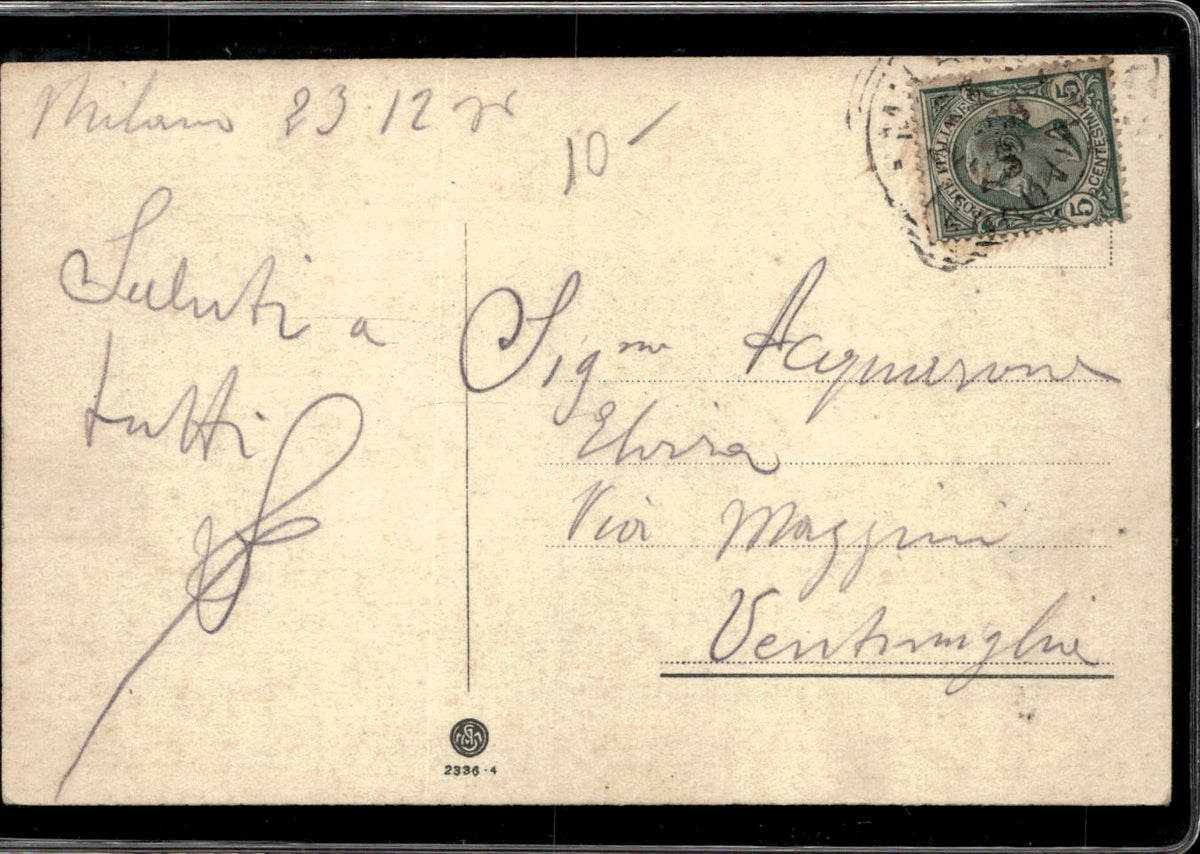 Milano 23·12
10
Saluti a
tutti
POSTE ITALIANE
5 CENTESIMI 5
Sig.na Acquarone
Elvira
Via Mazzini
Ventimiglia
2336-4